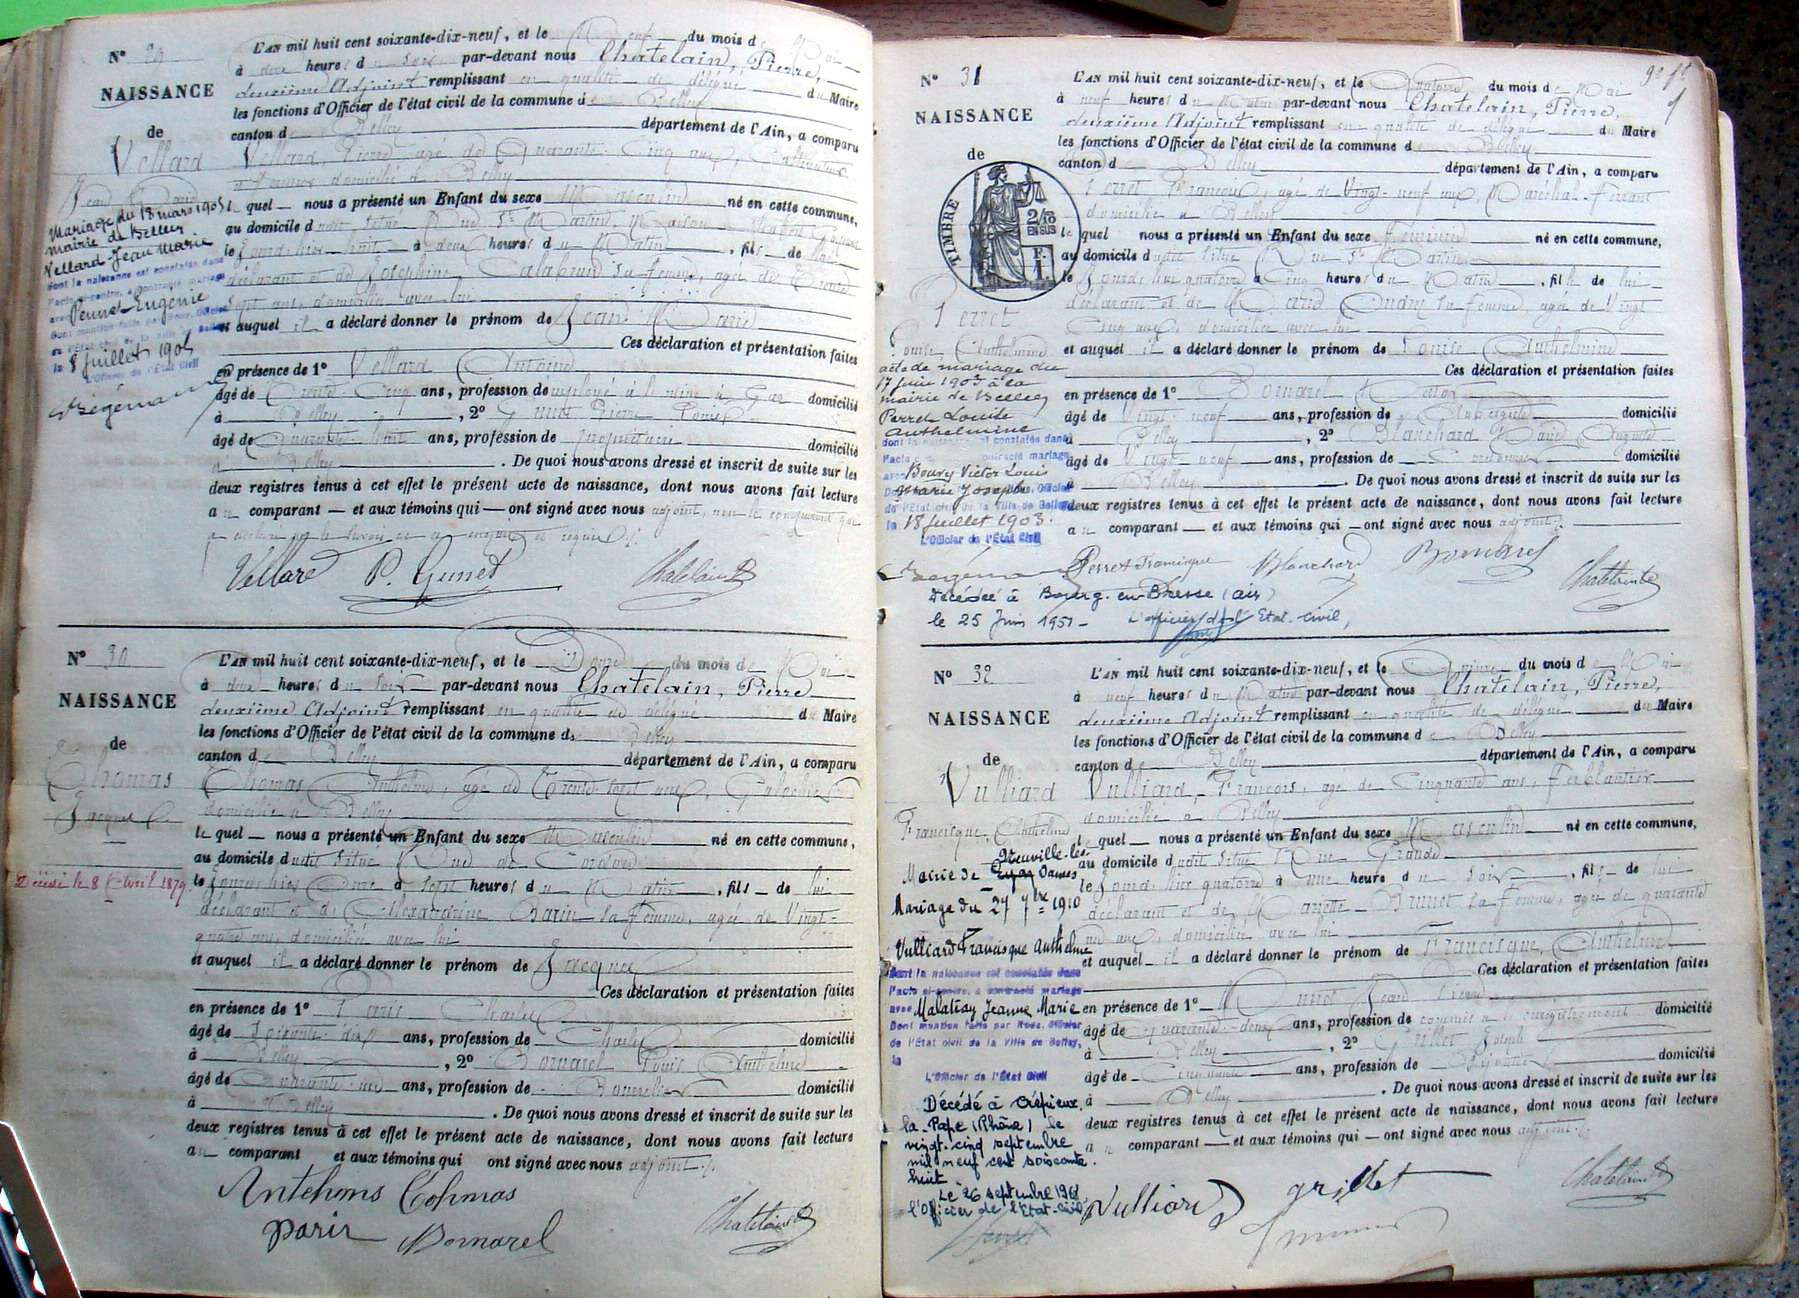 N° 29
NAISSANCE
de
Vellard
Jean Marie
Mariage du 18 mars 1905
mairie de Belley
Vellard Jean Marie
dont la naissance est constatée dans
l'acte ci-contre, a contracté mariage
avec Pennet Eugénie
8 juillet 1905
L'Officier de l'État Civil
L'AN mil huit cent soixante-dix-neuf, et le neuf du mois de Mai
à deux heures du soir par-devant nous Chatelain, Pierre,
deuxième Adjoint remplissant en qualité de délégué du Maire
les fonctions d'Officier de l'état civil de la commune de Belley
canton de Belley département de l'Ain, a comparu
Vellard, Pierre agé de Quarante Cinq ans, Cultivateur
domicilié à Belley
lequel nous a présenté un Enfant du sexe Masculin né en cette commune,
au domicile Rue St Martin Maison
le jourd'hier huit à deux heures du Matin, fils de lui
déclarant et de Joséphine sa femme, agée de Trente
sept ans, domiciliée avec lui
et auquel il a déclaré donner le prénom de Jean Marie
Ces déclaration et présentation faites
en présence de 1° Vellard Antoine
âgé de Trente Cinq ans, profession d'employé à l'usine à Gaz domicilié
à Belley, 2° Gunet Pierre
âgé de Quarante huit ans, profession de propriétaire domicilié
à Belley. De quoi nous avons dressé et inscrit de suite sur les
deux registres tenus à cet effet le présent acte de naissance, dont nous avons fait lecture
au comparant et aux témoins qui ont signé avec nous adjoint, non le comparant qui
a déclaré ne le savoir de ce enquis et requis
Vellard P. Gunet Chatelain
N° 30
NAISSANCE
de
Thomas
Jacques
Décédé le 8 Avril 1879.
L'AN mil huit cent soixante-dix-neuf, et le Douze du mois de Mai
à deux heures du soir par-devant nous Chatelain, Pierre
deuxième Adjoint remplissant en qualité de délégué du Maire
les fonctions d'Officier de l'état civil de la commune de Belley
canton de Belley département de l'Ain, a comparu
Thomas Anthelme, agé de Trente sept ans, Galochier
domicilié à Belley
lequel nous a présenté un Enfant du sexe Masculin né en cette commune,
au domicile dudit situé Rue de
le jourd'hier Onze à sept heures du Matin, fils de lui
déclarant et de Alexandrine Barin sa femme, agée de Vingt-
quatre ans, domiciliée avec lui
et auquel il a déclaré donner le prénom de Jacques
Ces déclaration et présentation faites
en présence de 1° Paris Charles
âgé de Soixante dix ans, profession de domicilié
à Belley, 2° Bornarel Louis Anthelme
âgé de Quarante un ans, profession de Bourrelier domicilié
à Belley. De quoi nous avons dressé et inscrit de suite sur les
deux registres tenus à cet effet le présent acte de naissance, dont nous avons fait lecture
au comparant et aux témoins qui ont signé avec nous adjoint
Antehms Tohmas
Paris Bornarel Chatelain
N° 31
NAISSANCE
de
TIMBRE
2/10
EN SUS
F.
1.
Perret
Louise Anthelmine
acte de mariage du
17 juin 1903 à la
mairie de Belley
Perret Louise
Anthelmine
dont la naissance est constatée dans
l'acte contracté mariage
avec Bouvy Victor Louis
Marie Joseph
de l'État civil de la Ville de Belley
le 18 juillet 1903.
L'Officier de l'État Civil
L'AN mil huit cent soixante-dix-neuf, et le Quatorze du mois de Mai
à neuf heures du Matin par-devant nous Chatelain, Pierre,
deuxième Adjoint remplissant en qualité de délégué du Maire
les fonctions d'Officier de l'état civil de la commune de Belley
canton de Belley département de l'Ain, a comparu
Perret François, agé de Vingt-neuf ans, Maréchal-ferrant
domicilié à Belley
lequel nous a présenté un Enfant du sexe féminin né en cette commune,
au domicile dudit situé Rue St Martin
le jourd'hui quatorze à Cinq heures du Matin, fille de lui
déclarant et de Marie sa femme agée de Vingt
Cinq ans, domiciliée avec lui
et auquel il a déclaré donner le prénom de Louise Anthelmine
Ces déclaration et présentation faites
en présence de 1° Bornarel
âgé de Vingt-neuf ans, profession de Aubergiste domicilié
à Belley, 2° Blanchard Marie Auguste
âgé de Vingt-neuf ans, profession de domicilié
à Belley. De quoi nous avons dressé et inscrit de suite sur les
deux registres tenus à cet effet le présent acte de naissance, dont nous avons fait lecture
au comparant et aux témoins qui ont signé avec nous adjoint
Perret Blanchard Bornarel Chatelain
Décédée à Bourg-en-Bresse (ain)
le 25 Juin 1951 - L'officier de l'Etat-civil,
N° 32
NAISSANCE
de
Vulliard
Francisque, Anthelme
Mairie de Neuville-les-
Dames
Mariage du 27 7bre 1910
Vulliard Francisque Anthelme
dont la naissance est constatée dans
l'acte ci-contre, a contracté mariage
avec Malatray Jeanne Marie
Dont mention faite par Nous, Officier
de l'État civil de la Ville de Belley,
le
L'Officier de l'État Civil
Décédé à Crépieux
la-Pape (Rhône) le
vingt-cinq septembre
mil neuf cent soixante
huit
Le 26 septembre 1968
l'Officier de l'Etat-civil
L'AN mil huit cent soixante-dix-neuf, et le Quinze du mois de Mai
à neuf heures du Matin par-devant nous Chatelain, Pierre,
deuxième Adjoint remplissant en qualité de délégué du Maire
les fonctions d'Officier de l'état civil de la commune de Belley
canton de Belley département de l'Ain, a comparu
Vulliard, François, agé de Cinquante ans, ferblantier
domicilié à Belley
lequel nous a présenté un Enfant du sexe Masculin né en cette commune,
au domicile dudit situé Rue Grande
le jourd'hier quatorze à une heure du soir, fils de lui
déclarant et de Mariette Brunet sa femme, agée de quarante
un ans, domiciliée avec lui
et auquel il a déclaré donner le prénom de Francisque, Anthelme
Ces déclaration et présentation faites
en présence de 1° Jean Pierre
âgé de Quarante-deux ans, profession de commis à l'enregistrement domicilié
à Belley, 2° Grillet Joseph
âgé de Cinquante ans, profession de Bijoutier domicilié
à Belley. De quoi nous avons dressé et inscrit de suite sur les
deux registres tenus à cet effet le présent acte de naissance, dont nous avons fait lecture
au comparant et aux témoins qui ont signé avec nous adjoint
Vulliard grillet Chatelain